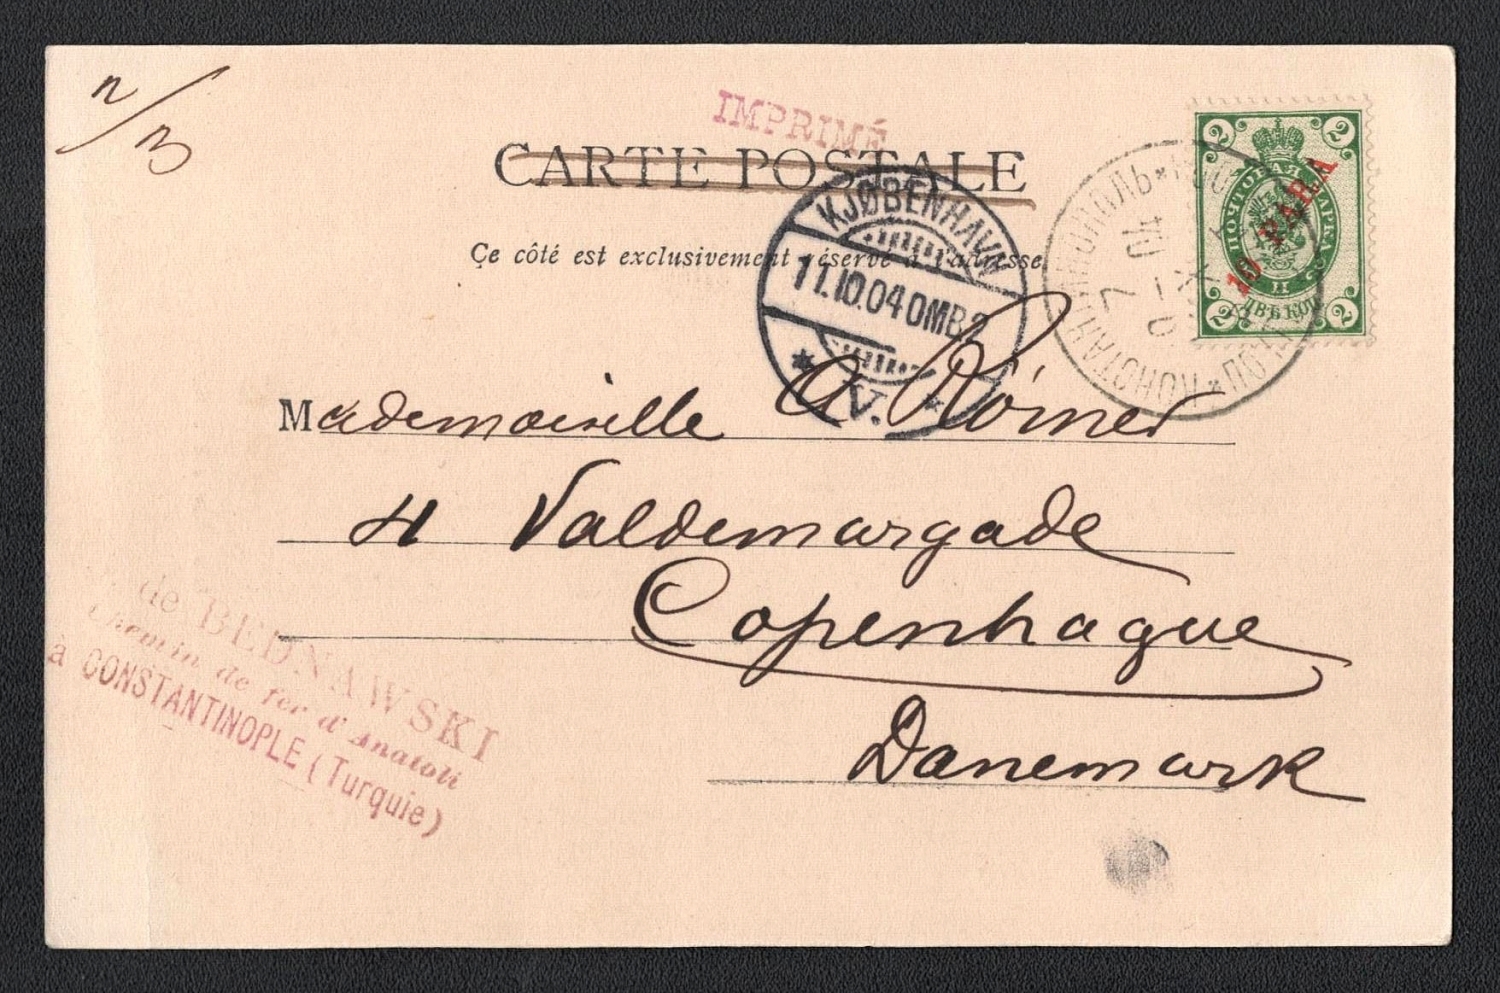 n/B
IMPRIMÉ
CARTE POSTALE
Çe côté est exclusivement réservé à l'adresse
KJØBENHAVN
11.10.04 OMB.2
V.
2 2
ПОЧТОВАЯ МАРКА
10 PARA
2 ДВѢ КОП. 2
Mademoiselle A Römer
41 Valdemargade
Copenhague
Danemark
de BEDNAWSKI
Chemin de fer d'Anatoli
à CONSTANTINOPLE (Turquie)